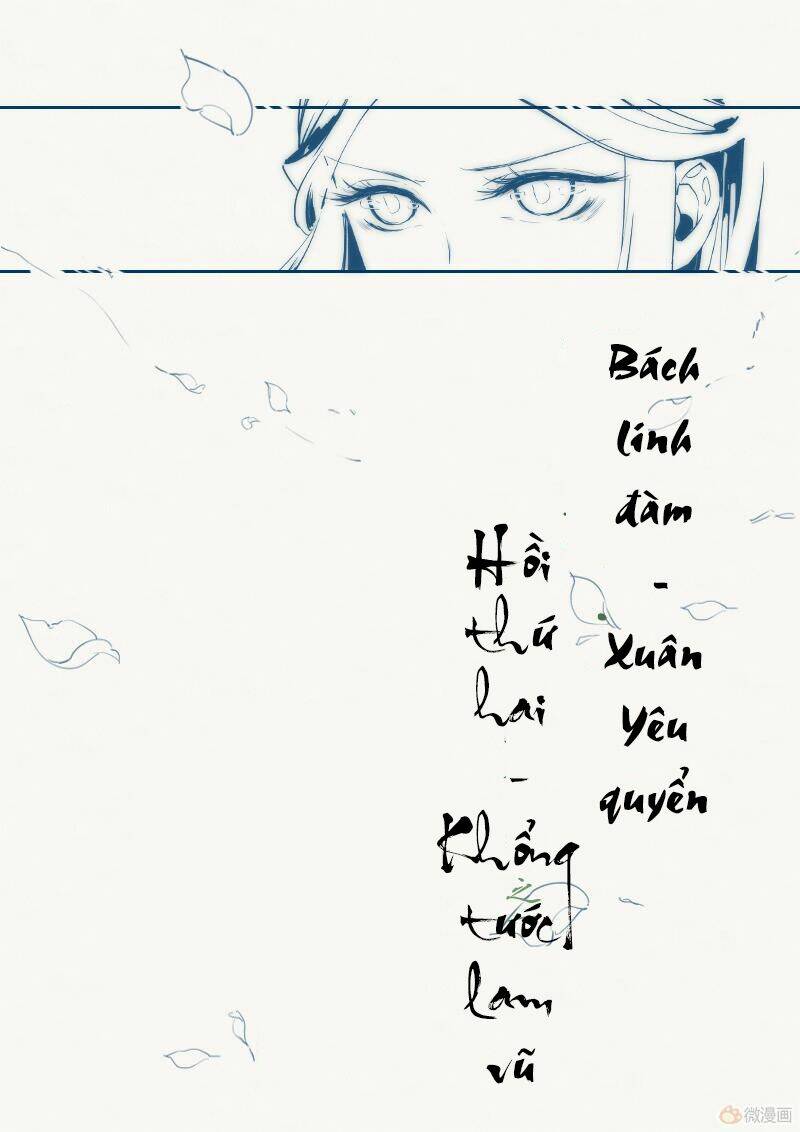 Bách
linh
đàm
-
Xuân
Yêu
quyển
Hồi
thứ
hai
-
Khổng
tước
lam
vũ
之
微漫画